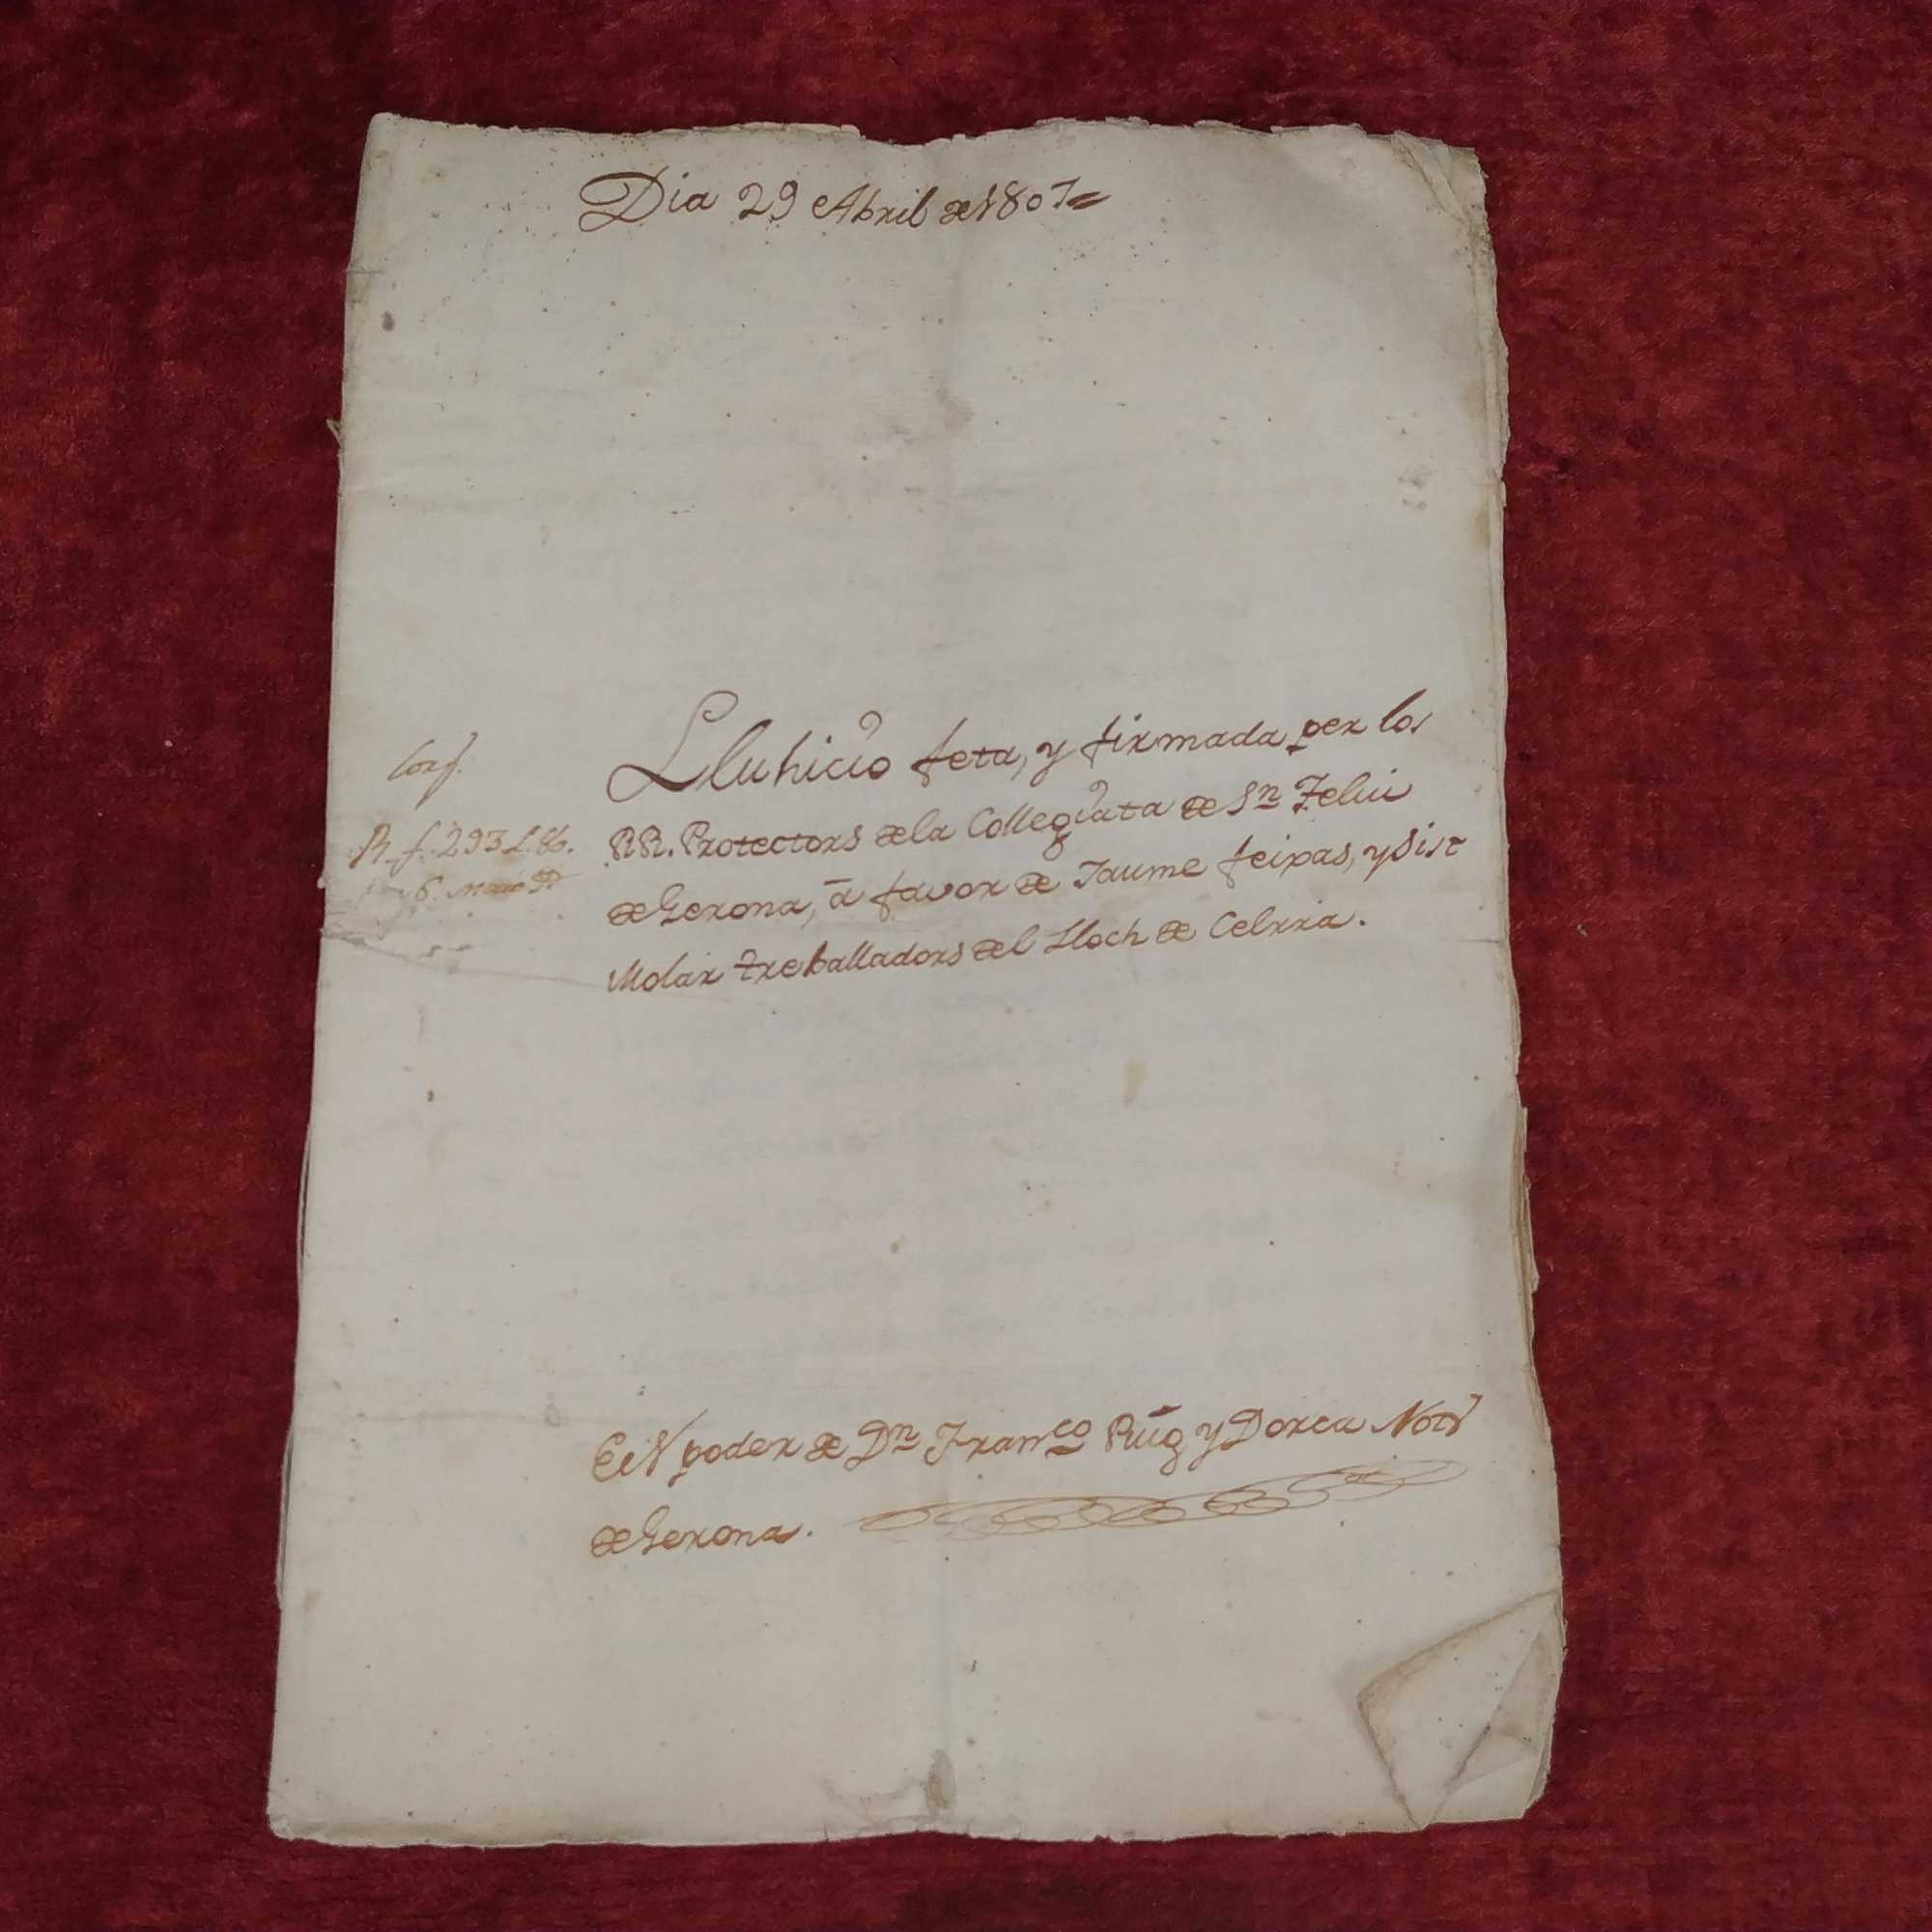 Dia 29 Abril de 1807=
Lluhicio feta, y firmada per los
RR. Protectors de la Collegiata de Sn Feliu
de Gerona, á favor de Jaume feixas, y Sist
Molar treballadors del Lloch de Celrra.
R. f. 293 L. 86.
6. Maio
En poder de Dn Franco Puig y Dorca Notr
de Gerona.